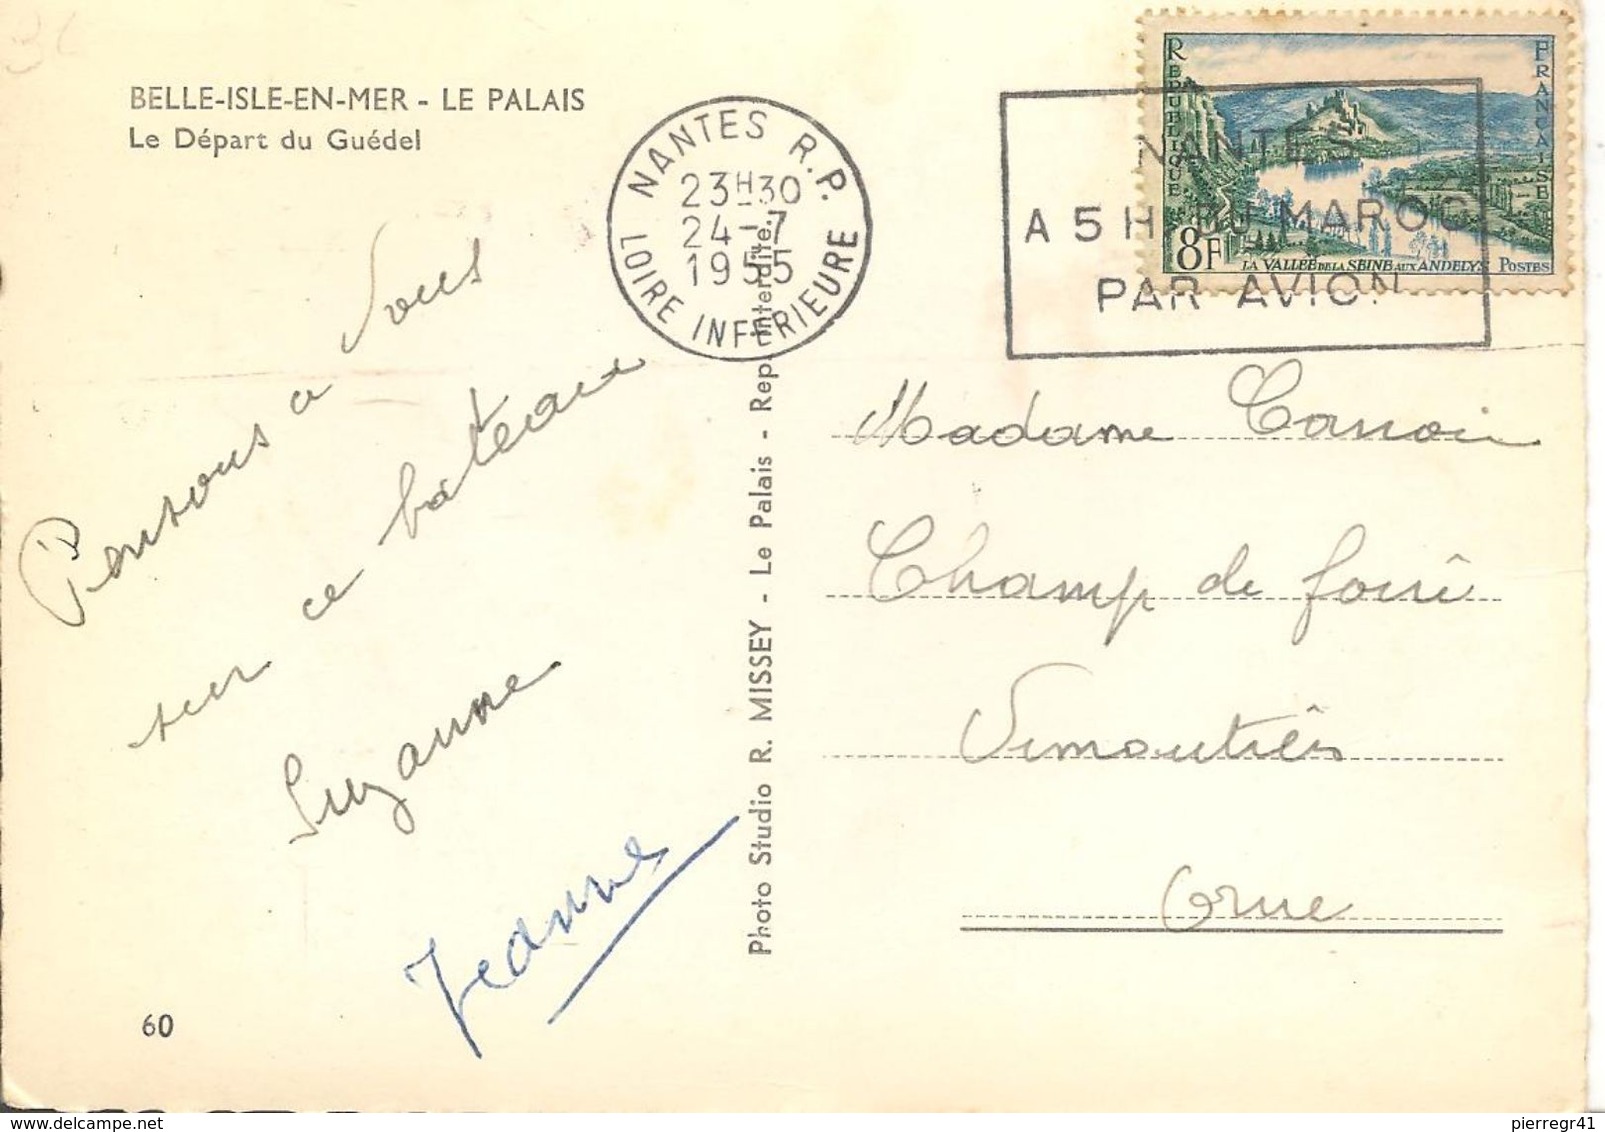 BELLE-ISLE-EN-MER - LE PALAIS
Le Départ du Guédel
NANTES R.P.
23H30
24-7
1955
LOIRE INFERIEURE
NANTES
A 5H DU MAROC
PAR AVION
REPUBLIQUE FRANÇAISE
8F
LA VALLÉE DE LA SEINE AUX ANDELYS POSTES
Pensons a vous
sur ce bateau
Suzanne
Jeanne
Photo Studio R. MISSEY - Le Palais - Rep. Interdite.
Madame
Champ de foire
Vimoutiers
Orne
60
pierregr41